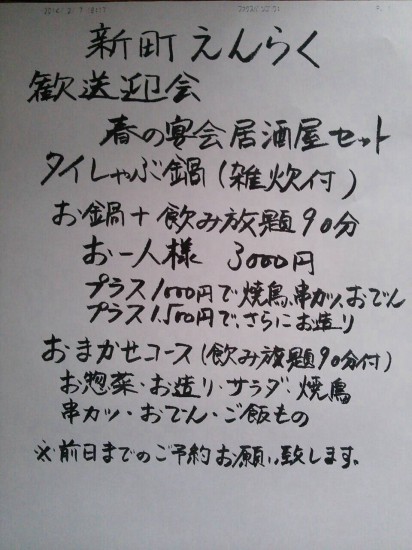 新町えんらく
歓送迎会
春の宴会居酒屋セット
タイしゃぶ鍋(雑炊付)
お鍋+飲み放題90分
お一人様 3000円
プラス1000円で焼鳥、串カツ、おでん
プラス1,500円で、さらにお造り
おまかせコース(飲み放題90分付)
お惣菜・お造り・サラダ・焼鳥
串カツ・おでん・ご飯もの
※前日までのご予約お願い致します。